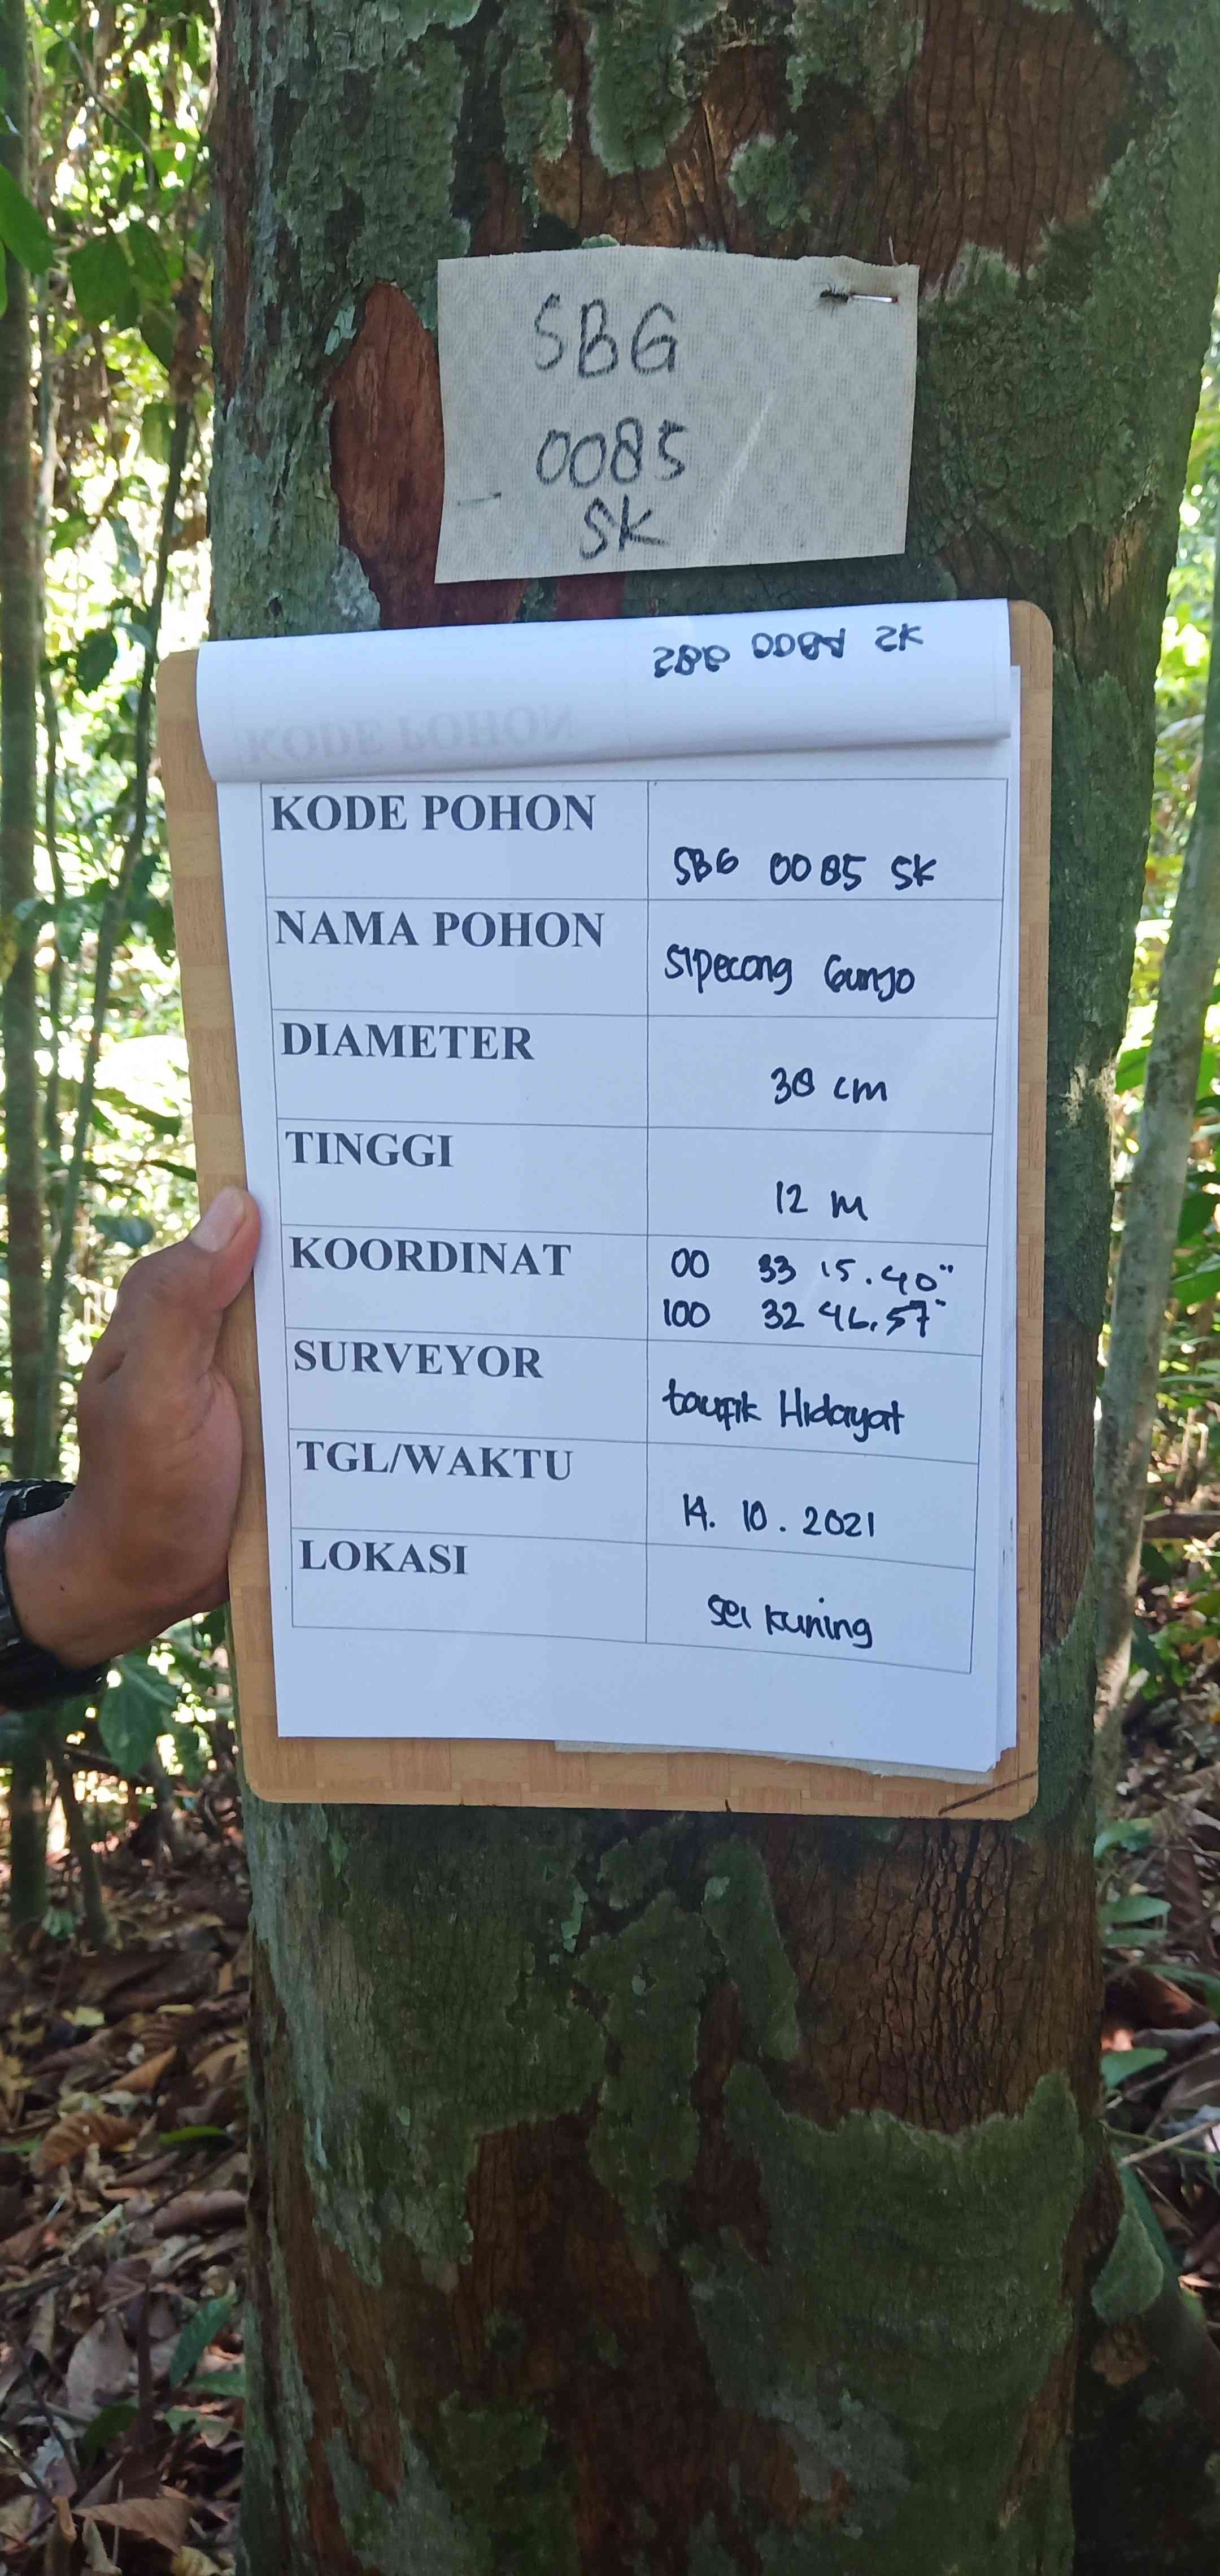 SBG
0085
SK
SBG 0084 SK
KODE POHON
KODE POHON
SBG 0085 SK
NAMA POHON
Sipecong Gunjo
DIAMETER
38 cm
TINGGI
12 m
KOORDINAT
00 33 15.40"
100 32 46.57"
SURVEYOR
taufik Hidayat
TGL/WAKTU
14. 10. 2021
LOKASI
Sei kuning